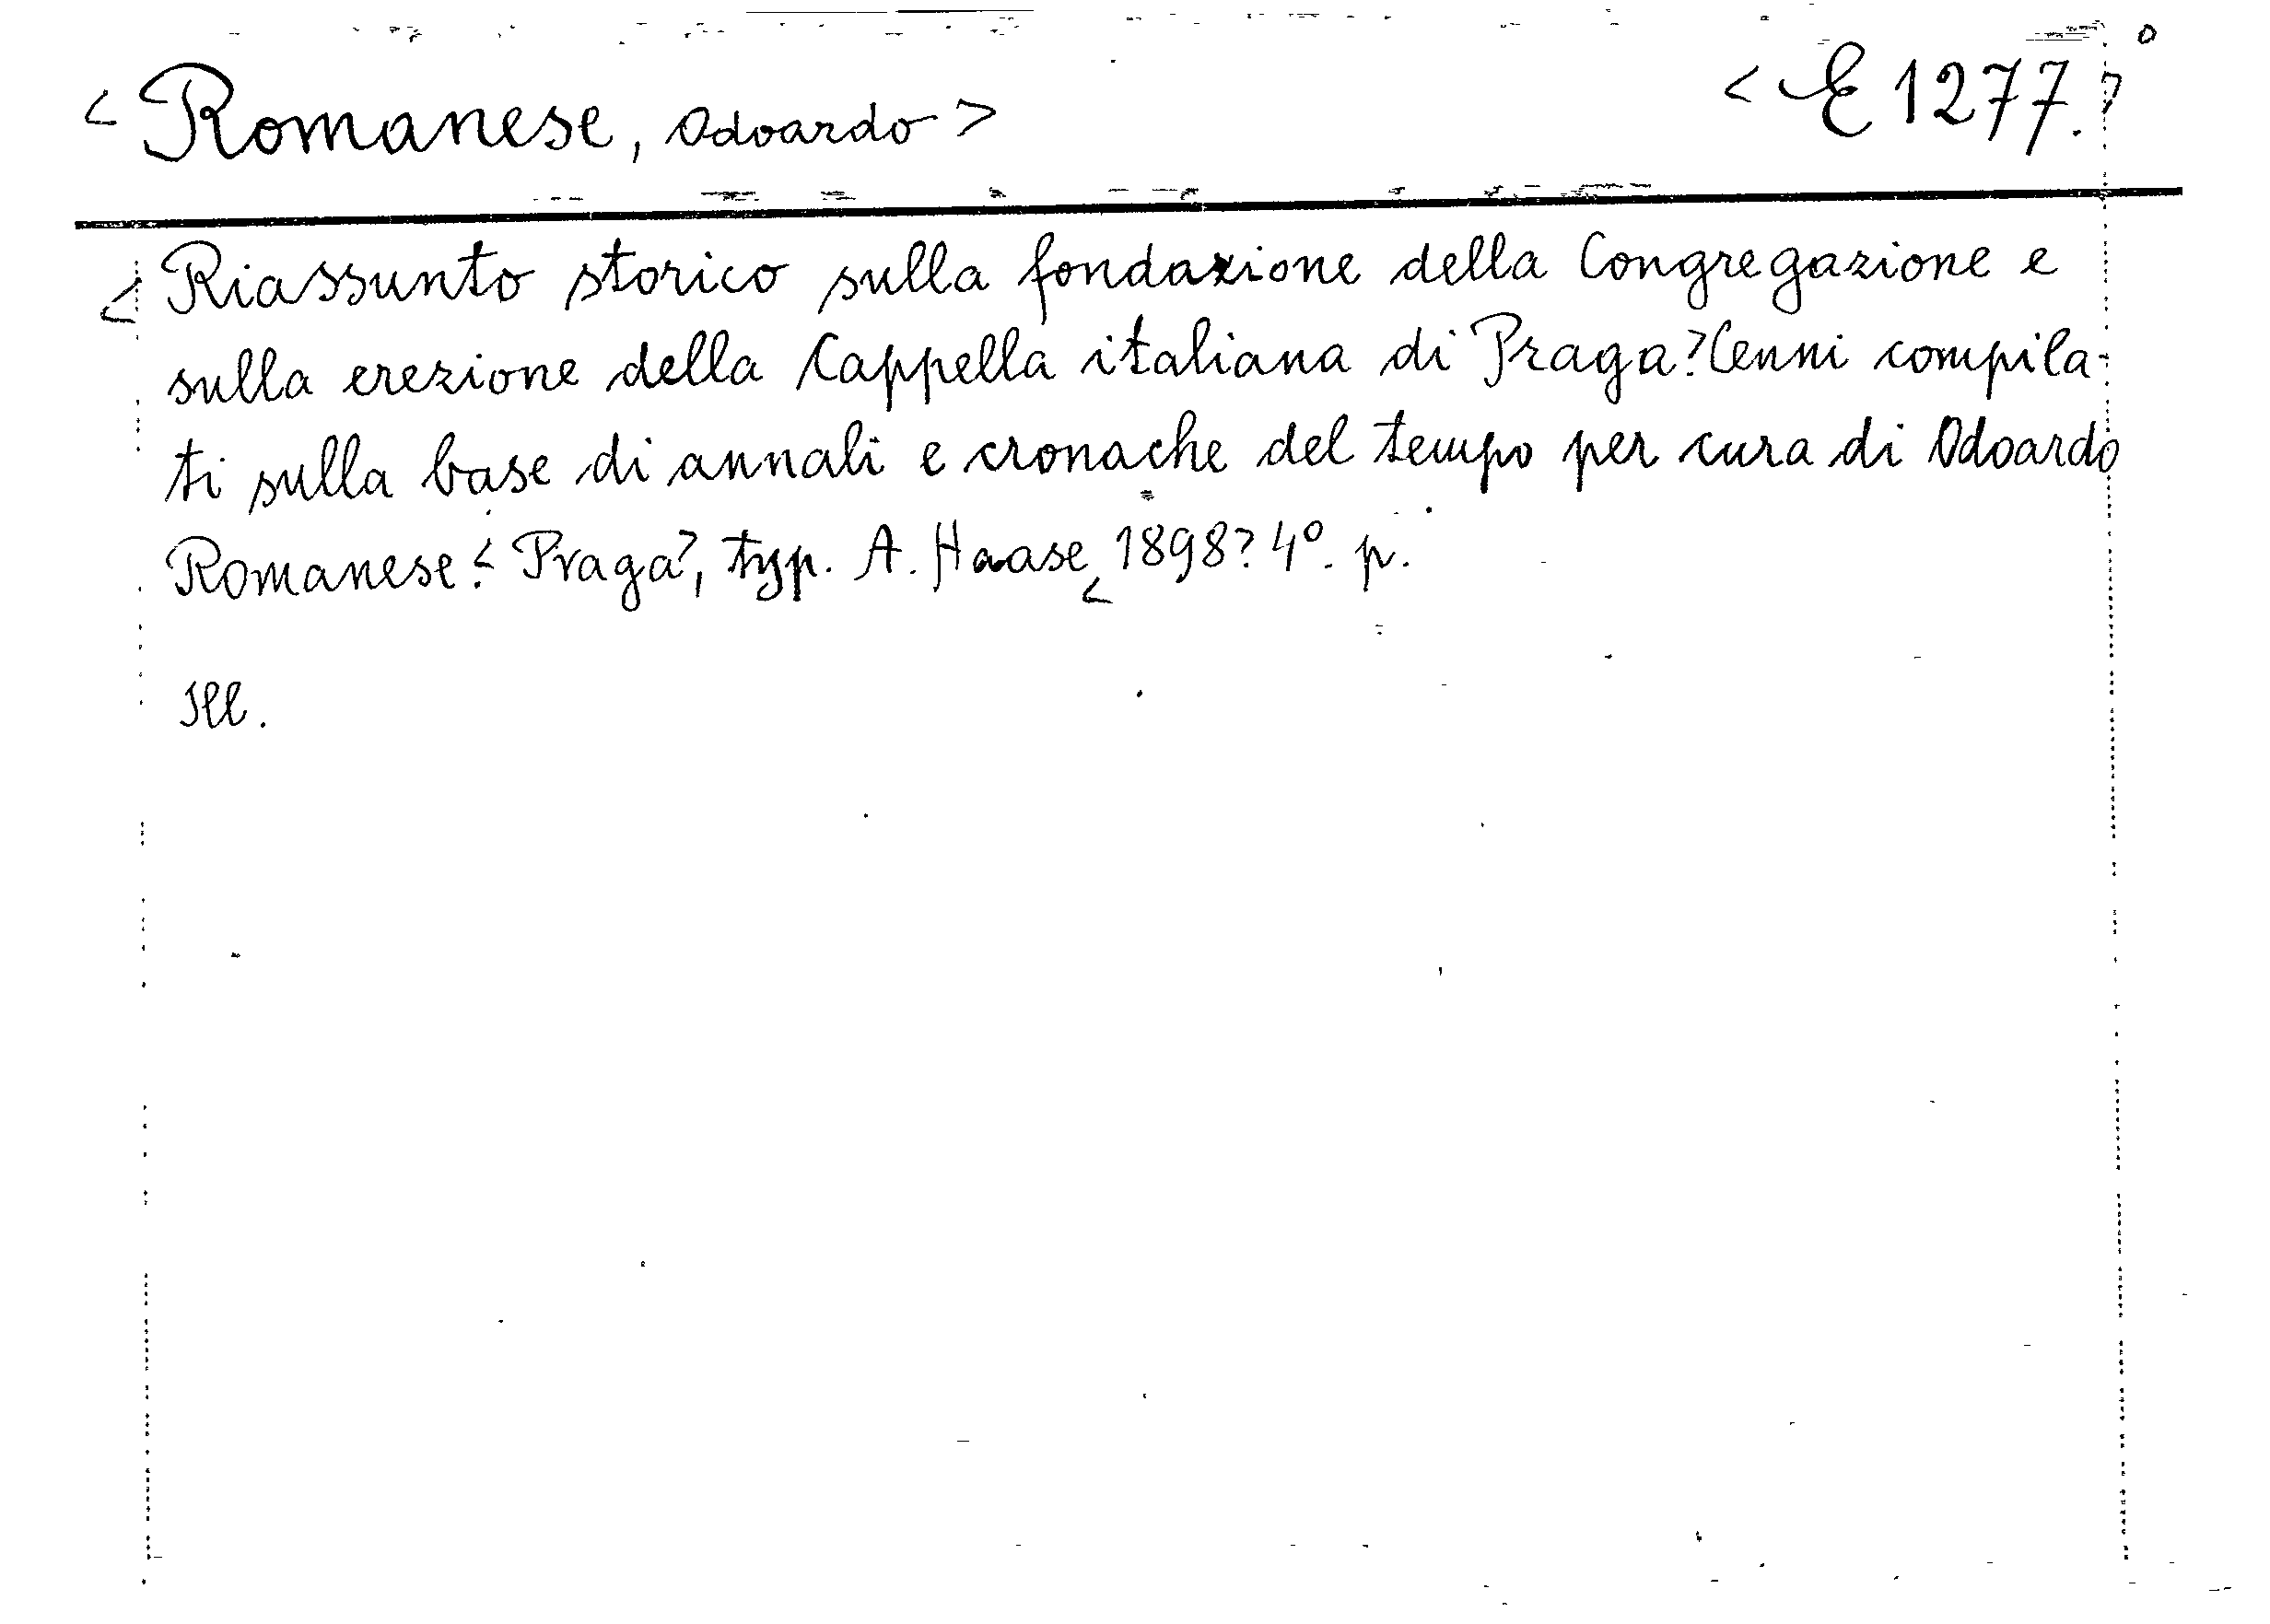 <Romanese, Odoardo> <E 1277.>
<Riassunto storico sulla fondazione della Congregazione e
sulla erezione della Cappella italiana di Praga.> Cenni compila-
ti sulla base di annali e cronache del tempo per cura di Odoardo
Romanese. <Praga>, typ. A. Haase, <1898>. 4°. p.
Ill.